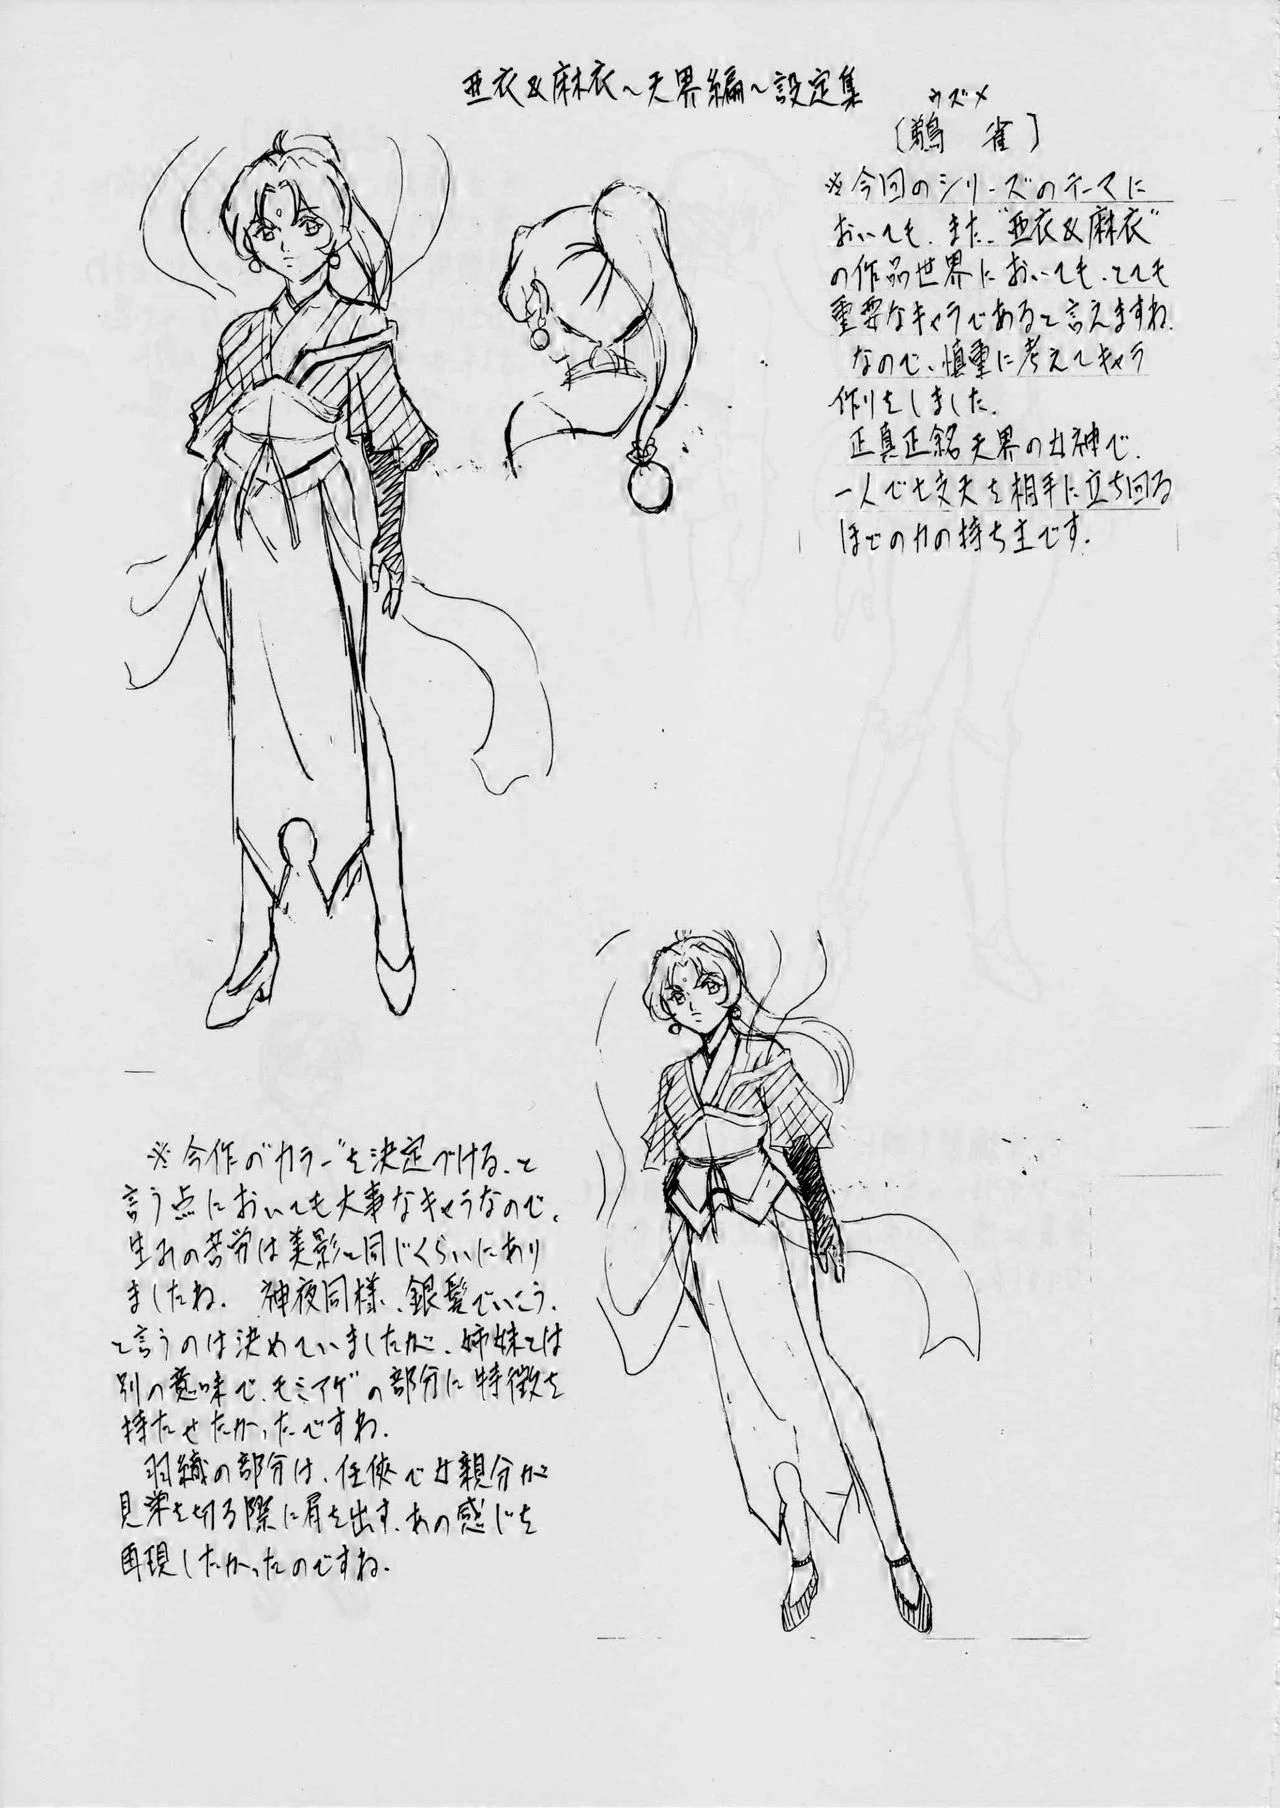 亜衣&麻衣~天界編~設定集
ウズメ
〔鵜 雀〕
※今回のシリーズのテーマに
おいても、また"亜衣&麻衣"
の作品世界においても、とても
重要なキャラであると言えますね。
なので、慎重に考えてキャラ
作りをしました。
正真正銘天界の女神で、
一人で七支天を相手に立ち回る
ほどの力の持ち主です。
※今作の"カラー"を決定づける、と
言う点においても大事なキャラなので、
生みの苦労は美影と同じくらいにあり
ましたね。 神夜同様、銀髪でいこう、
と言うのは決めていましたが、姉妹とは
別の意味で、モミアゲの部分に特徴を
持たせたかったですね。
羽織の部分は、任侠で女親分が
見栄を切る際に肩を出す、あの感じを
再現したかったのですね。